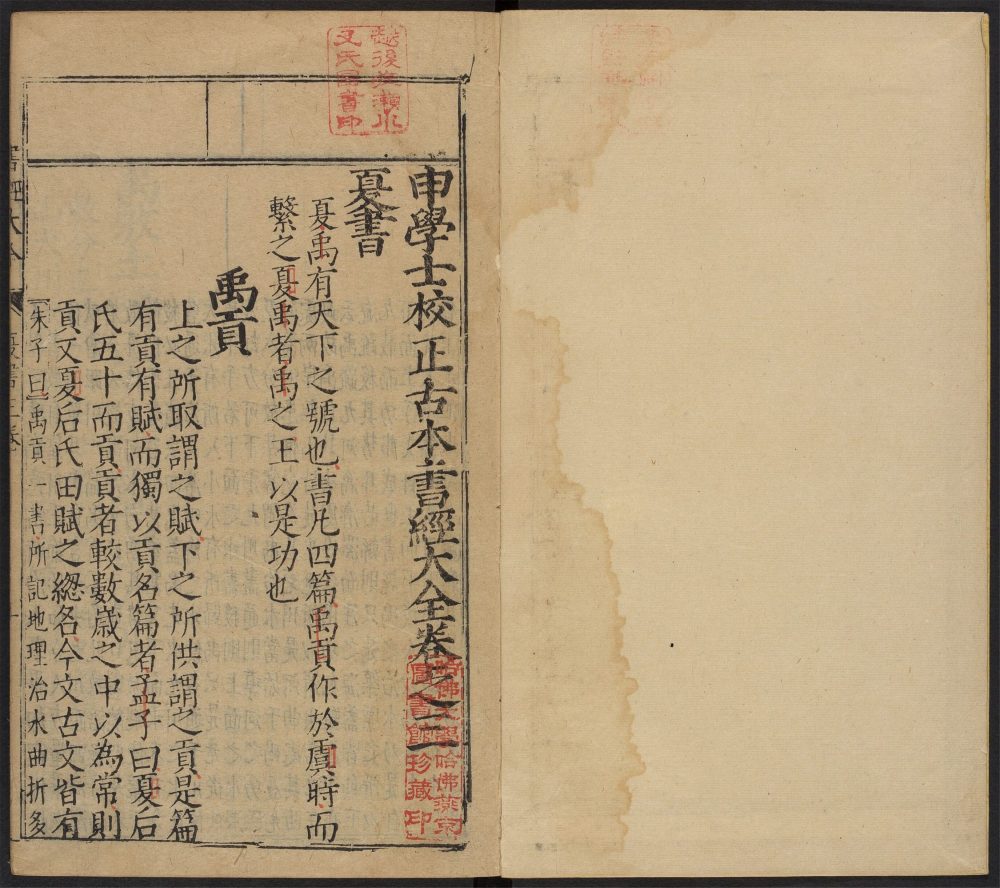 申學士校正古本書經大全卷之三
夏書
夏禹有天下之號也書凡四篇禹貢作於虞時而
繫之夏禹者禹之王以是功也
禹貢
上之所取謂之賦下之所供謂之貢是篇
有貢有賦而獨以貢名篇者孟子曰夏后
氏五十而貢貢者較數歲之中以為常則
貢又夏后氏田賦之緫名今文古文皆有
朱子曰禹貢一書所記地理治水曲折多
哈佛大學哈佛燕京
圖書館珍藏印